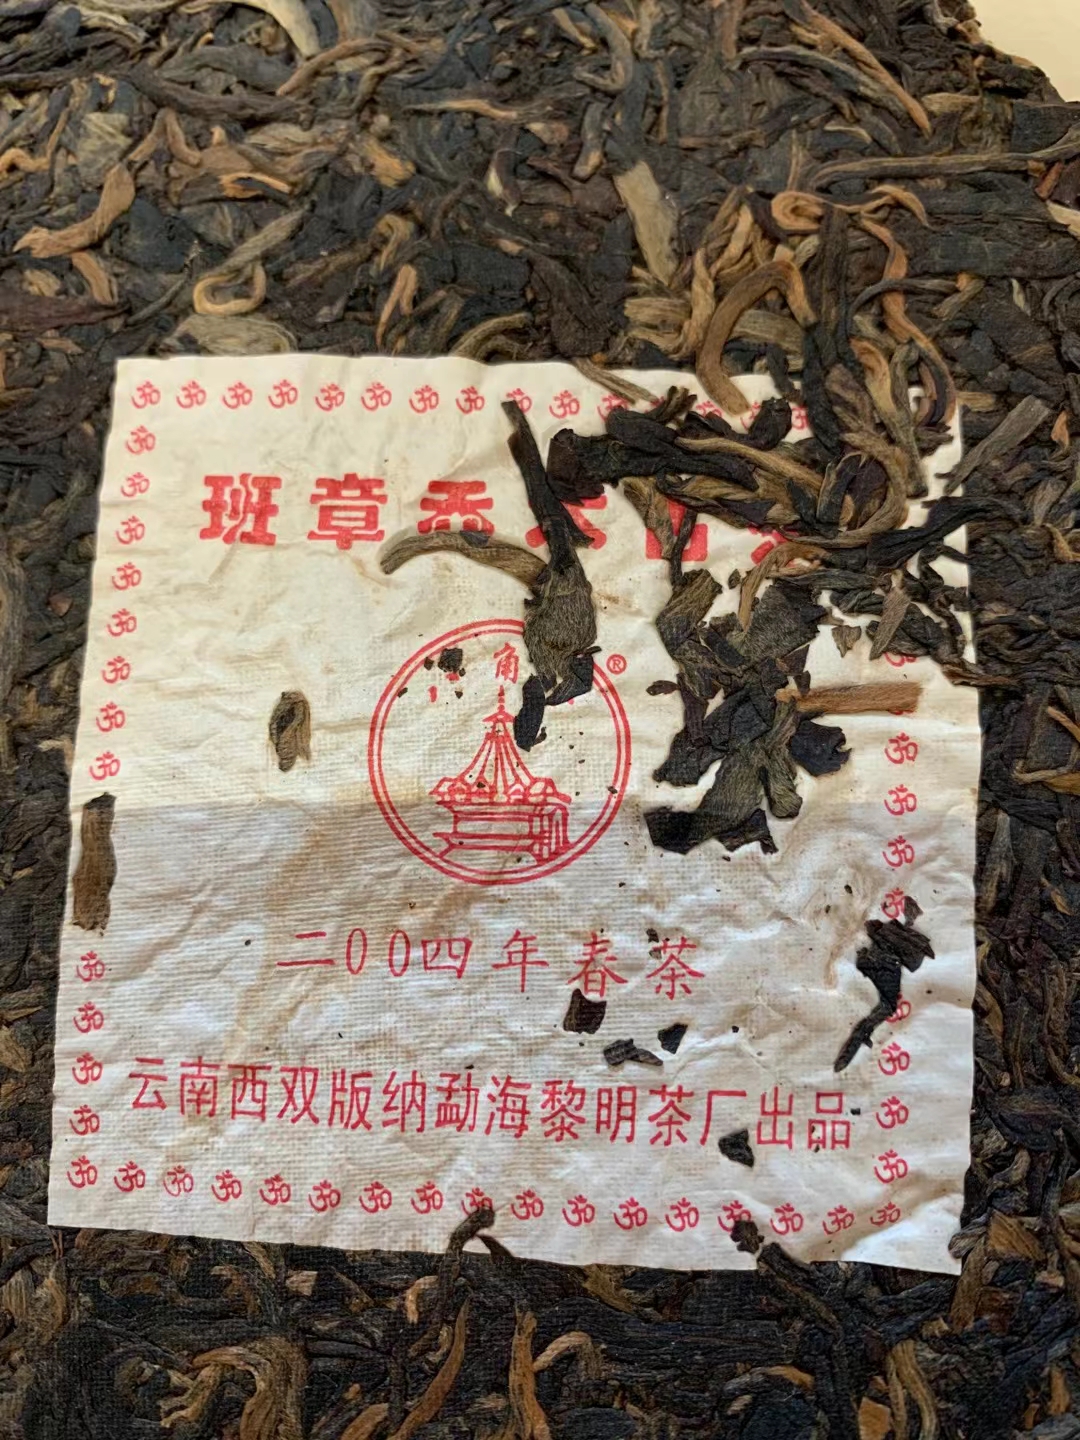 班章乔
角
®
二00四年春茶
云南西双版纳勐海黎明茶厂出品